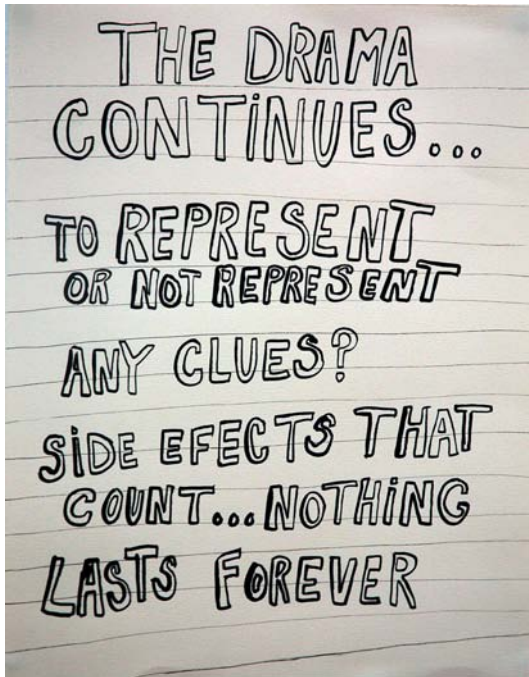 THE DRAMA
CONTiNUES...
TO REPRESENT
OR NOT REPRESENT
ANY CLUES?
SiDE EFECTS THAT
COUNT...NOTHiNG
LASTS FOREVER